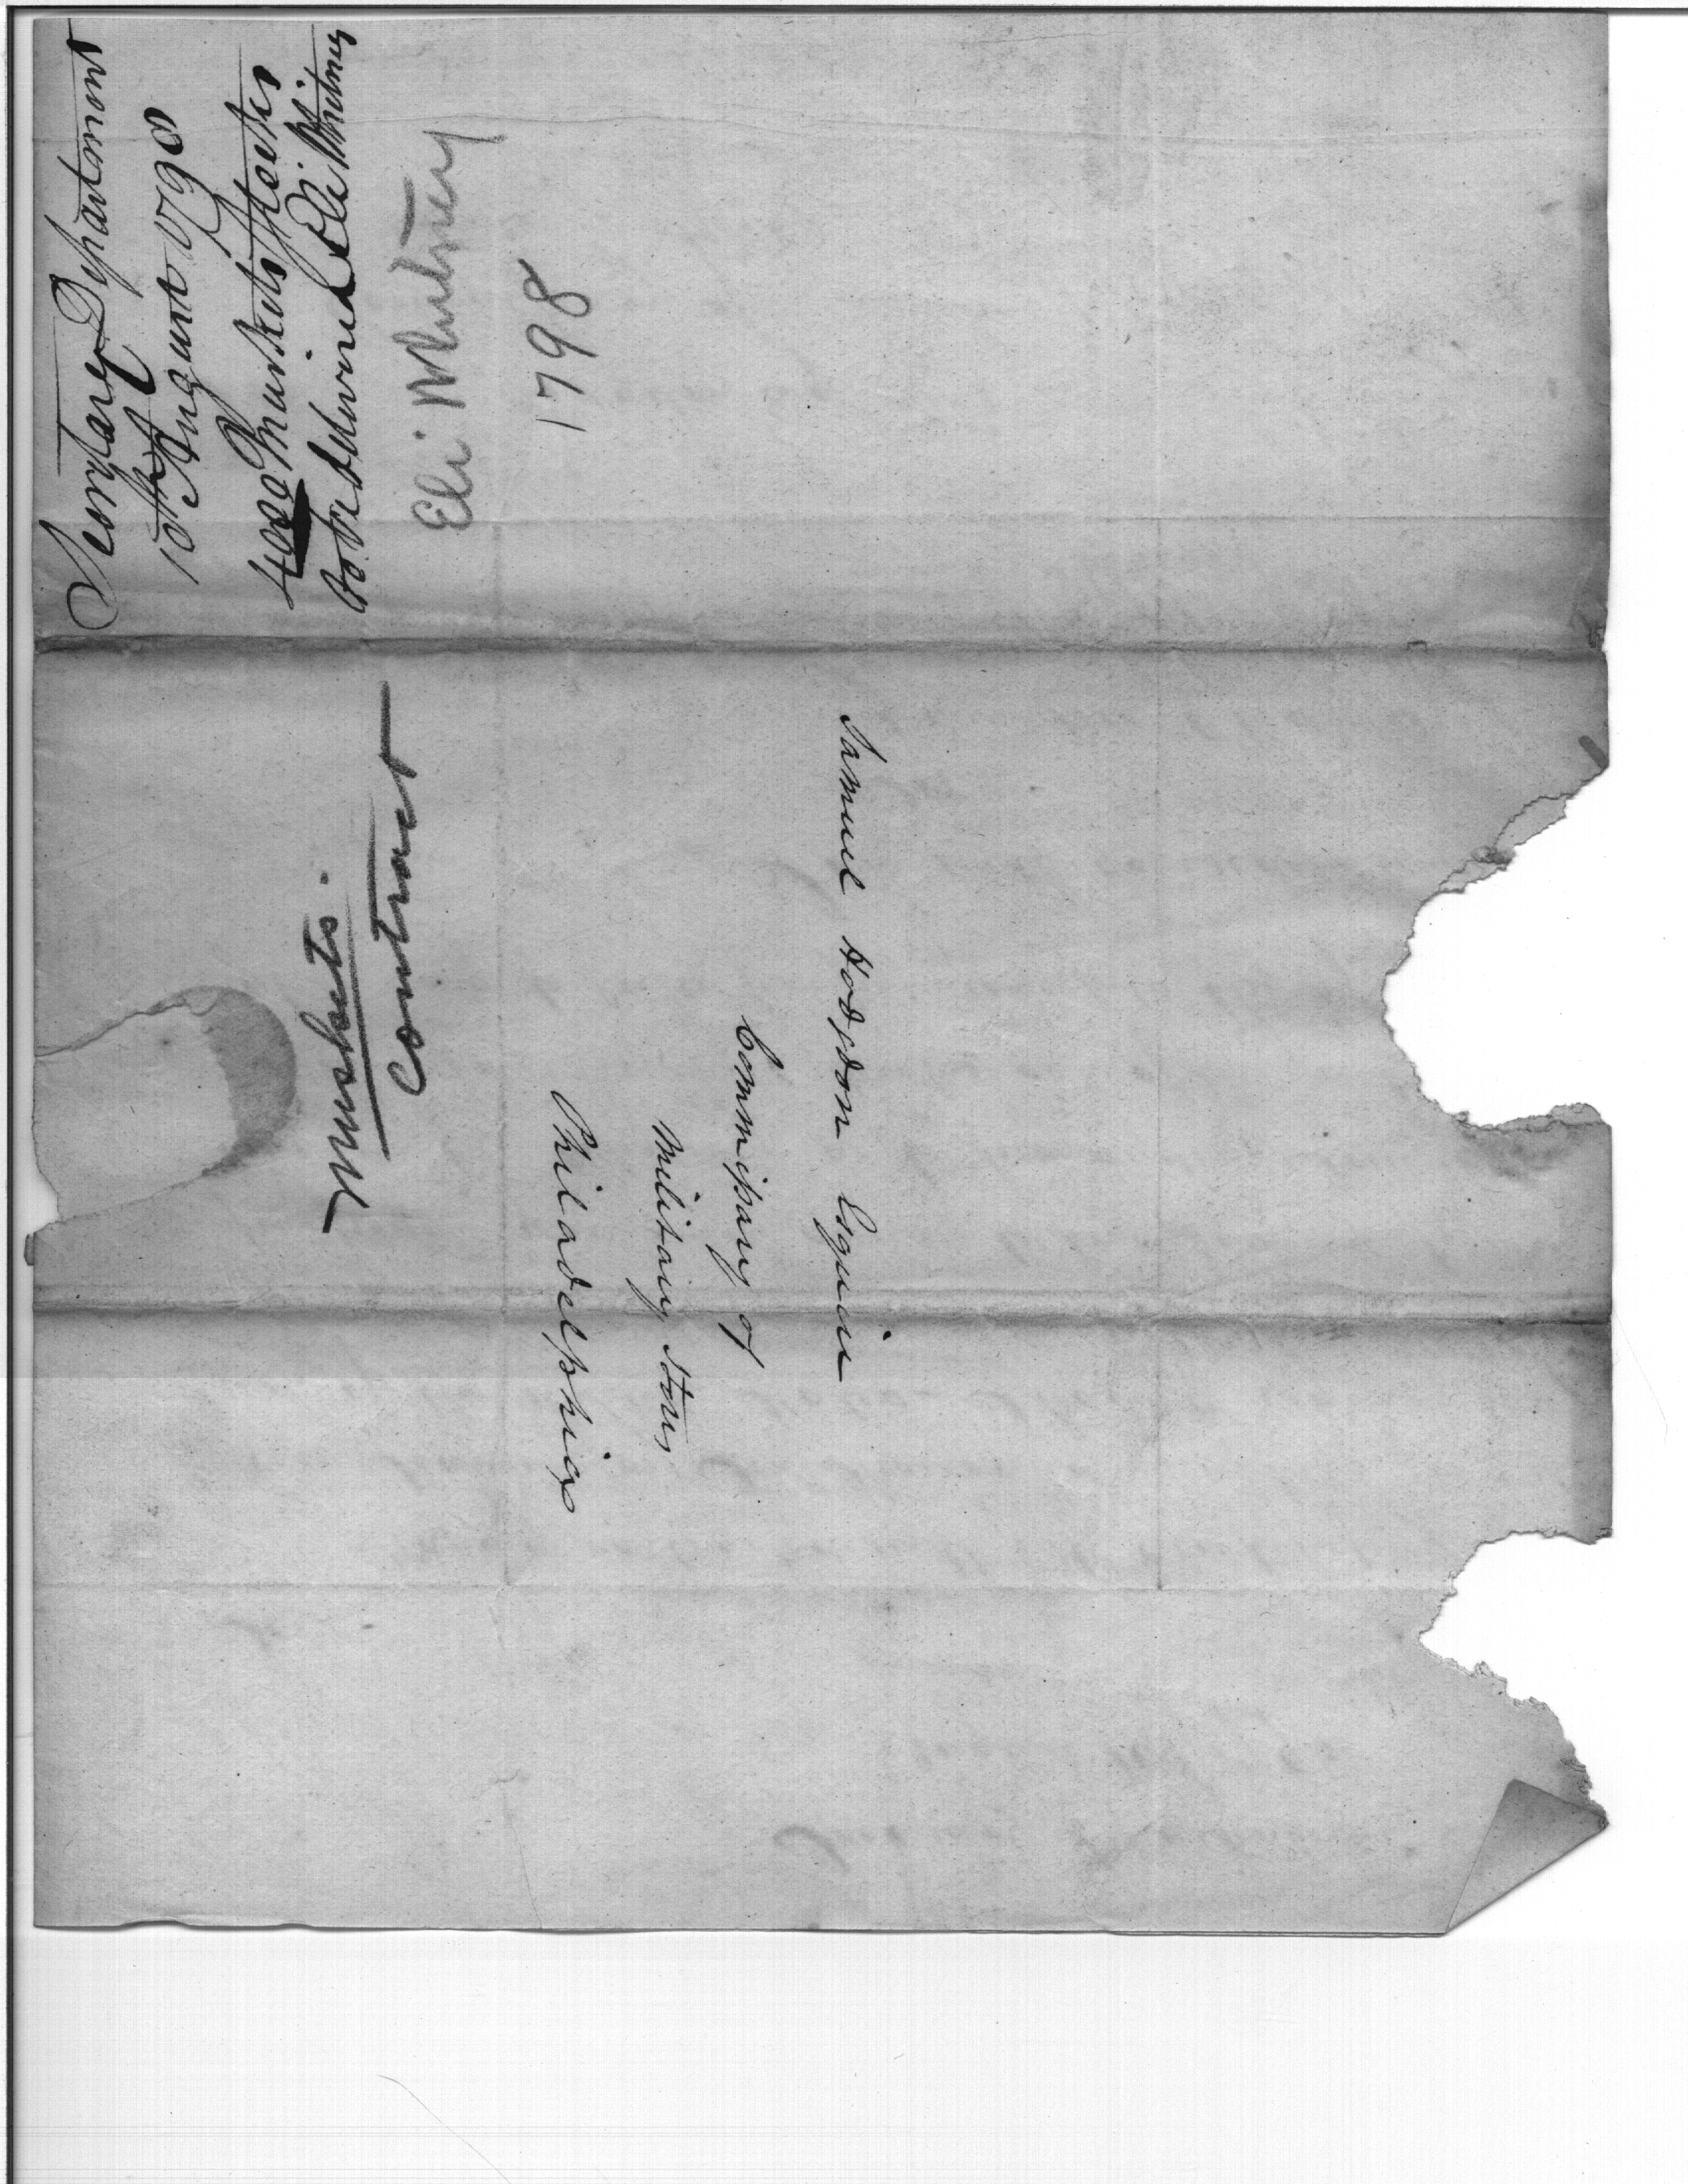 Secretary Department
10th August 1798
4000 Muskets
to be delivered Eli Whitney
Eli Whitney
1798
Muskets.
Contract
Samuel Hodgdon Esquire
Commissary of
Military Stores
Philadelphia